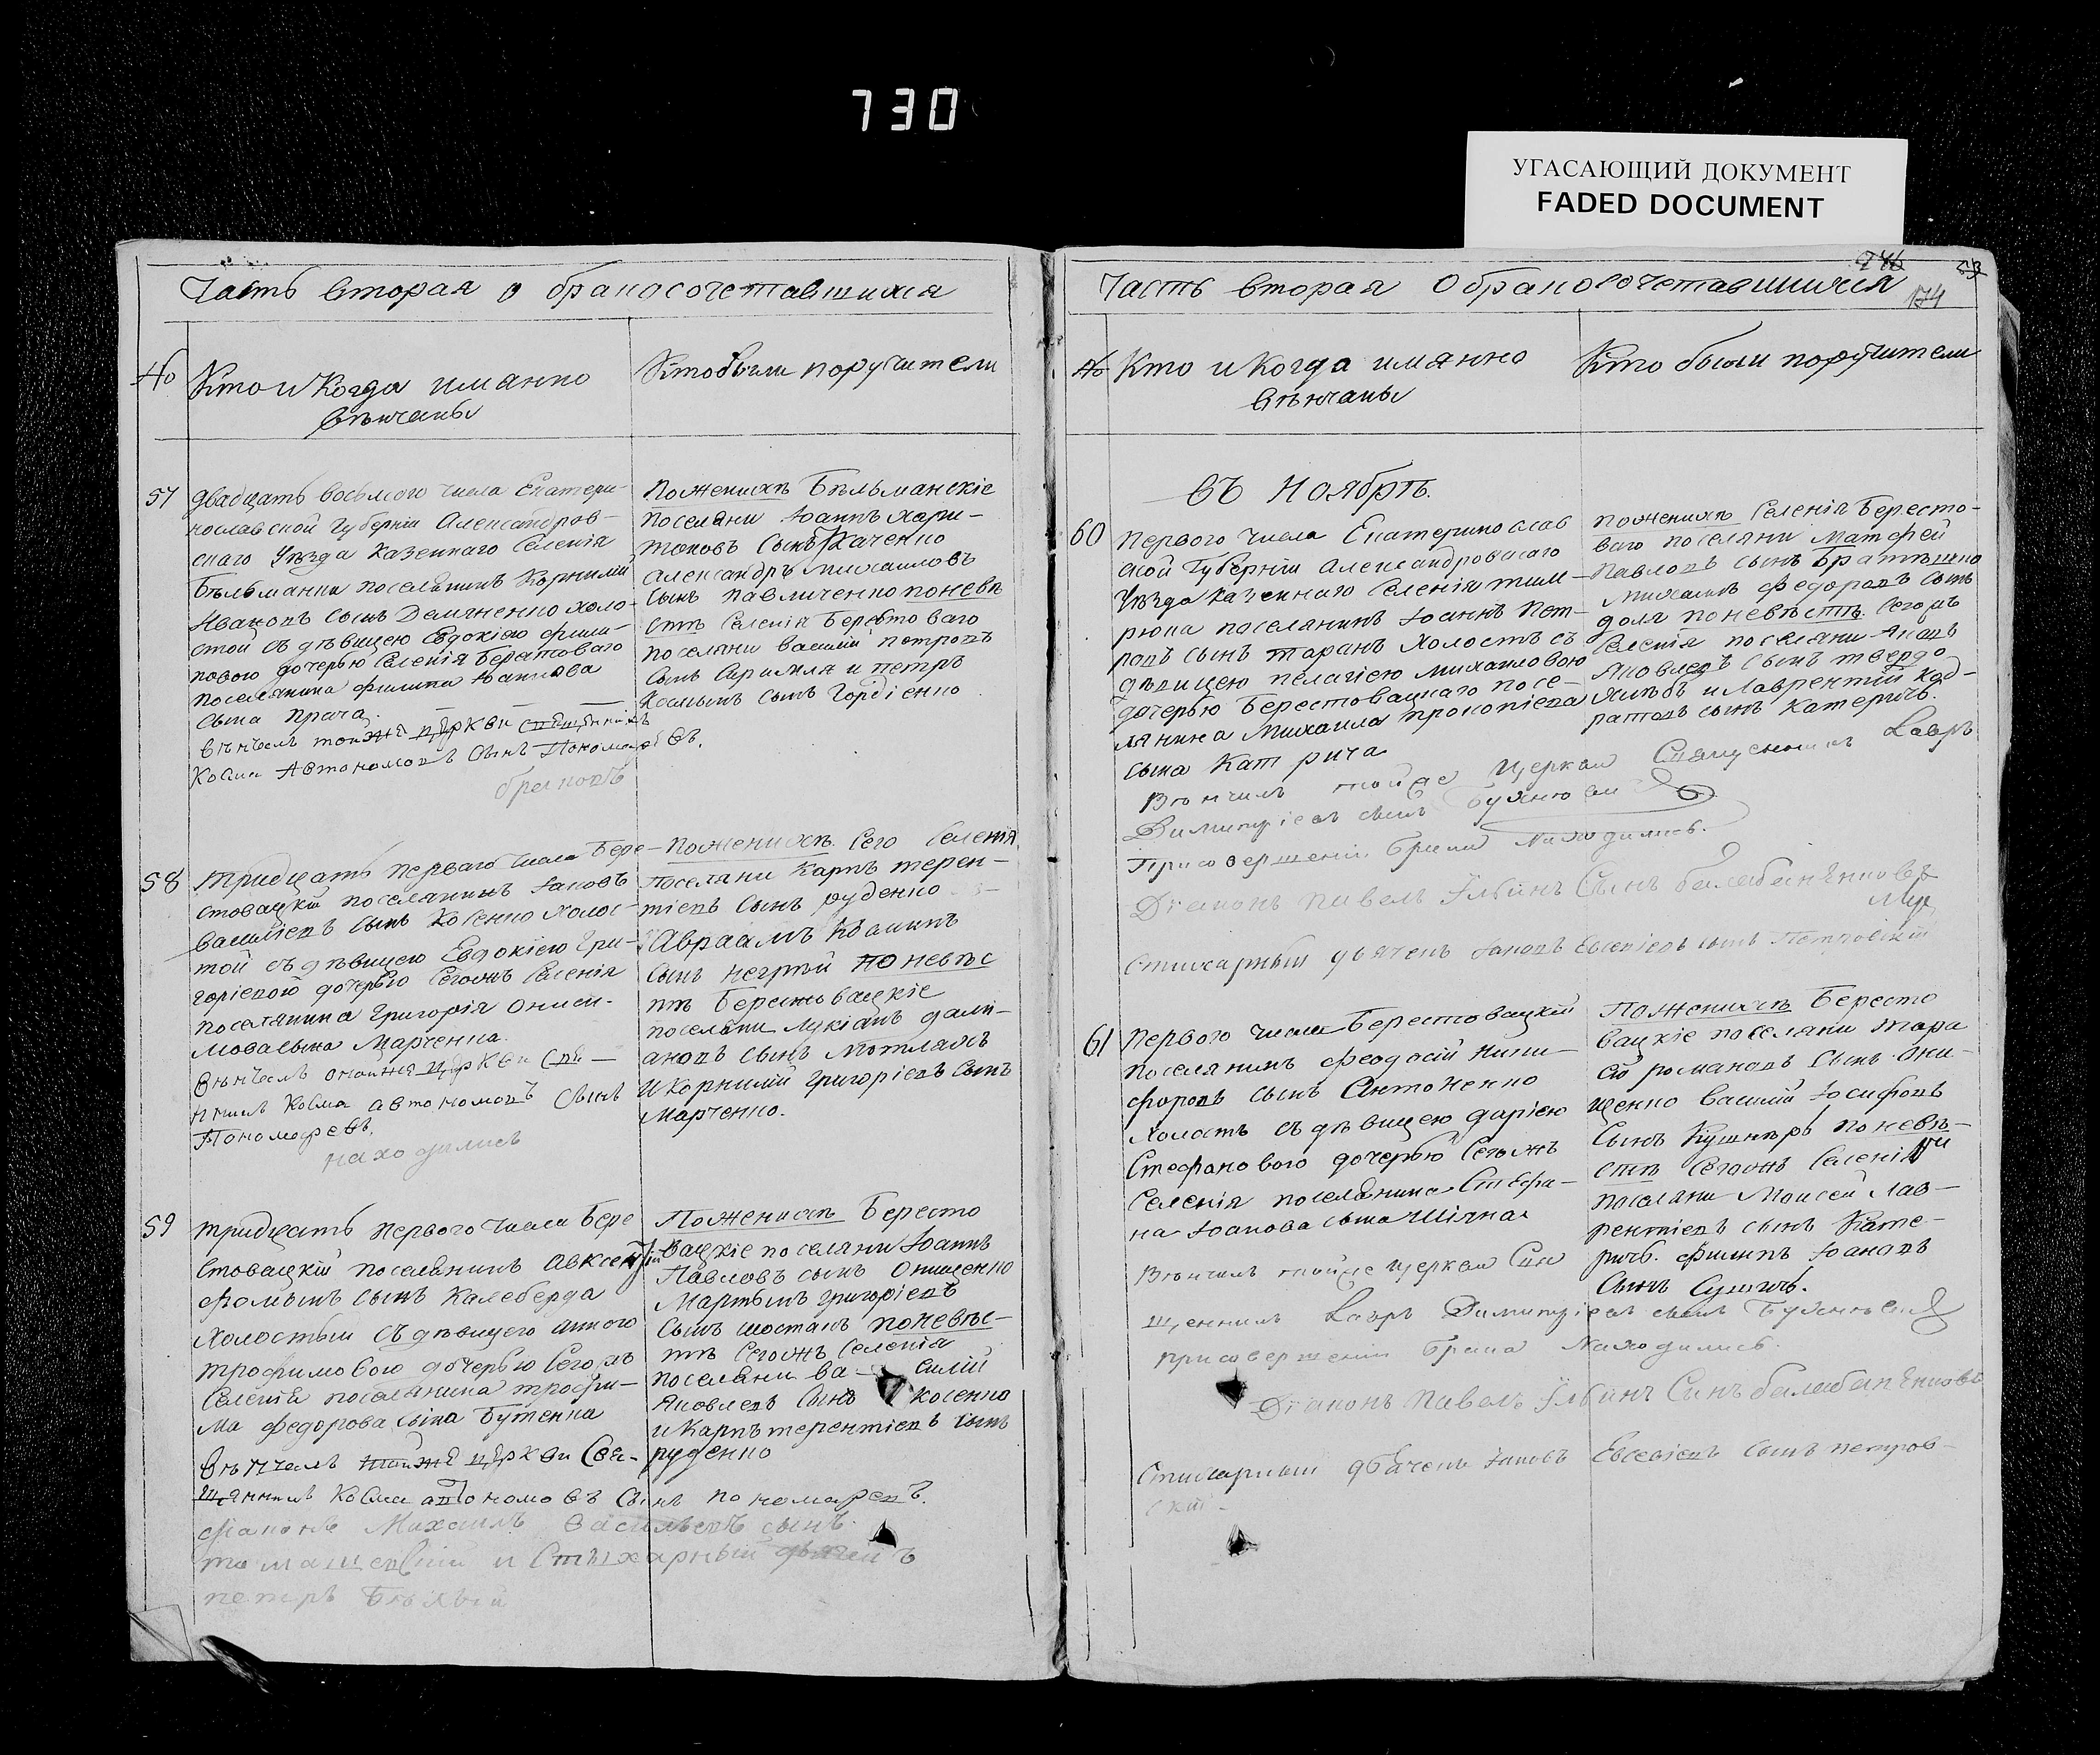 730
УГАСАЮЩИЙ ДОКУМЕНТ
FADED DOCUMENT
Часть вторая о бракосочетавшихся
№
Кто и Когда имянно
Вѣнчаны
Кто были поручители
57
двадцать восьмого числа Екатери-
нославской Губерніи Александров-
скаго Уѣзда Казеннаго Селенія
Бѣльманки поселянинъ Корнилій
Ивановъ сынъ Демченко холо-
стой съ дѣвицею Евдокіею Фили-
повою дочерью Селенія Берестоваго
поселянина Филипа Іоаннова
сына Прача.
вѣнчалъ тойже церкви священникъ
Косма Автономовъ сынъ Пономаревъ.
браковъ
По женихѣ Бѣльманскіе
поселяни Іоаннъ Хари-
тоновъ сынъ Ткаченко
Александръ Михаиловъ
сынъ Павличенко по невѣ
стѣ Селенія Берестоваго
поселяни Василій Петровъ
сынъ и Петръ
Космынъ сынъ Гордіенко
58
тридцать перваго числа Бере-
стовацкій поселянинъ Іаковъ
Василіевъ сынъ Косенко холос-
той съ дѣвицею Евдокіею Гри-
горіевой дочерью Сегожъ Селенія
поселянина Григорія Ониси-
мова сына Марченка.
Вѣнчалъ оной же церкви Свя-
Косма Автономовъ сынъ
Пономаревъ.
находились
По женихѣ Сего Селенія
поселяни Карпъ Терен-
тіевъ сынъ Руденко
Авраамъ Космынъ
сынъ Негрѣй по невѣс
тѣ Берестовацкіе
поселяни Лукіанъ Дамі-
ановъ сынъ Мотляхъ
и Корнилій Григоріевъ сынъ
Марченко.
59
тридцать первого числа Бере
стовацкій поселянинъ Авксентій
Фомынъ сынъ Калеберда
холостый съ дѣвицею Анною
Трофимовою дочерью Сегожъ
Селенія поселянина Трофи-
ма Федорова сына Бутенка
вѣнчалъ тойже церкви Свя-
щянникъ Косма Автономовъ сынъ Пономаревъ.
діаконъ Михаилъ Васильевъ сынъ
Томашевскій и Стыхарный дьячекъ
Петръ Бѣлый
По женихѣ Бересто
вацкіе поселяни Іоаннъ
Павловъ сынъ Онищенко
Мартынъ Григоріевъ
сынъ Шостакъ по невѣс-
тѣ Сегожъ Селенія
поселяни Ва- силій
Яковлевъ сынъ Косенко
и Карпъ Терентіевъ сынъ
Руденко
Часть вторая о бракосочетавшихся
174
№
Кто и Когда имянно
Вѣнчаны
Кто были поручители
Въ Ноябрѣ.
60
Первого числа Екатеринослав
ской Губерніи Александровскаго
Уѣзда Казеннаго Селенія Тим-
рюка поселянинъ Іоаннъ Пет-
ровъ сынъ Таранъ холостъ съ
дѣвицею Пелагіею Михаиловою
дочерью Берестовацкаго посе-
лянина Михаила Прокопіева
сына Кат рича
Вѣнчалъ тойже Церкви Священникъ Лавръ
Димитріевъ сынъ
При совершеніи брака Находились.
Діаконъ Павелъ Ульинъ Сынъ
Стихарный дьячекъ Іаковъ Евсевіевъ сынъ Петровскій
По женихѣ Селенія Бересто-
ваго поселяни Матфей
Павловъ сынъ
Михаилъ Федоровъ сынъ
Доля по невѣстѣ. Сегожъ
Селенія поселяни Яковъ
Яковлевъ сынъ Твердо
хлѣбъ и Лаврентій Код-
ратовъ сынъ Катеричъ.
61
Первого числа Берестовацкій
поселянинъ Феодосій Ники-
форовъ сынъ Антоненко
холостъ съ дѣвицею Даріею
Стефановою дочерью Сегожъ
Селенія поселянина Стефа-
на Іоанова сына Шіяна
Вѣнчалъ тойже церкви Свя
щенникъ Лавръ Димитріевъ сынъ
при совершеніи брака Находились.
Діаконъ Павелъ Ульинъ Синъ
Стихарный дьячекъ Іаковъ Евсевіевъ сынъ Петров-
скій
По женихѣ Бересто
вацкіе поселяни Тара
сій Романовъ сынъ Они-
щенко Василій Іосифовъ
сынъ Кушнѣръ по невѣ-
стѣ Сегожъ Селенія
поселяни Моисей Лав-
рентіевъ сынъ Кате-
ричъ. Филипъ Іоановъ
сынъ